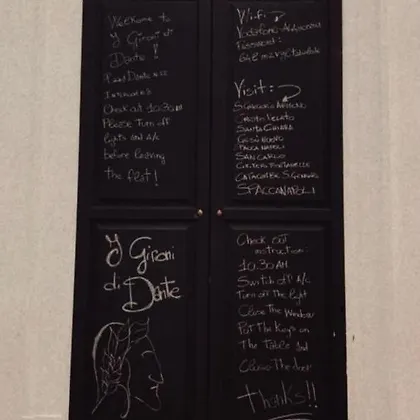 Welcome to
I Gironi di
Dante !
Check out 10:30 AM
Please Turn off
lights and A/c
before leaving
the flat!
I Gironi
di
Dante
Wifi
Vodafone
Password:
Visit:
S. Gregorio Armeno
Cristo Velato
Santa Chiara
Gesù Nuovo
San Carlo
Catacombe S. Gennaro
SPACCANAPOLI
Check out
instruction:
10:30 AM
Switch off A/c
Turn off the light
Close The Window
Put The Keys on
The Table and
Close The door
Thanks!!